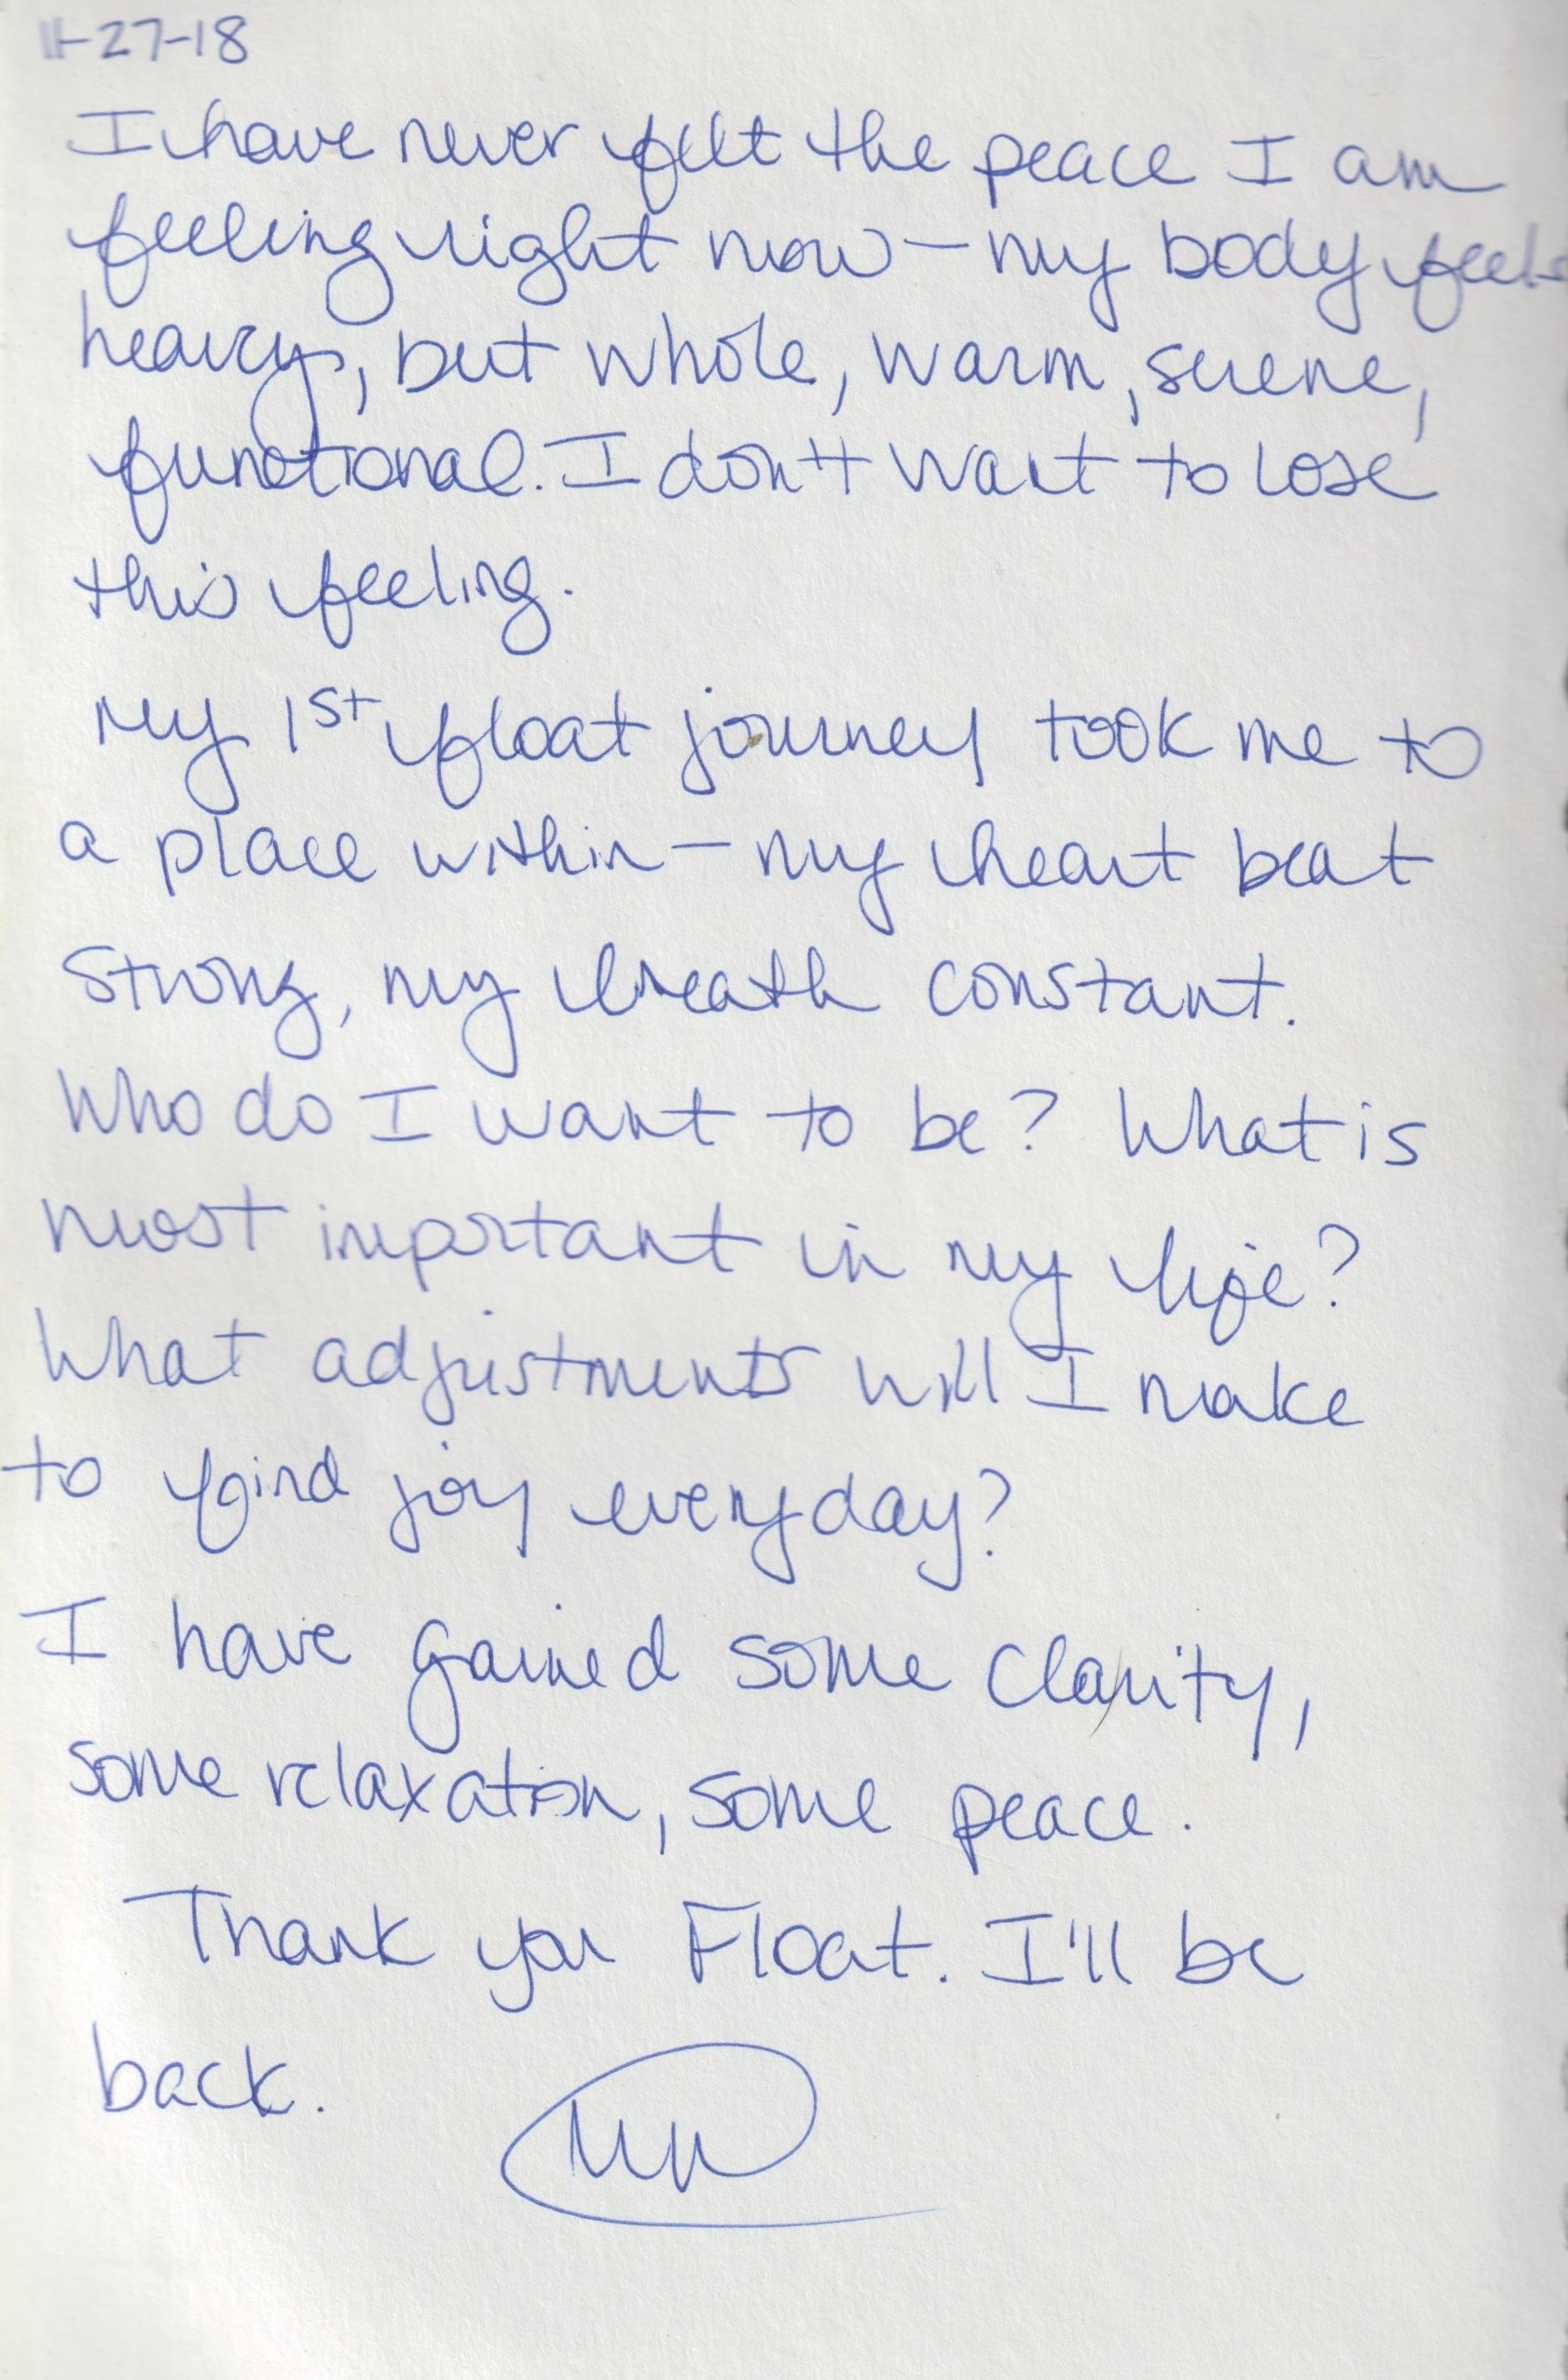 11-27-18
I have never felt the peace I am
feeling right now – my body feels
heavy, but whole, warm, serene,
functional. I don't want to lose
this feeling.
My 1st float journey took me to
a place within – my heart beat
strong, my breath constant.
Who do I want to be? What is
most important in my life?
What adjustments will I make
to find joy everyday?
I have gained some clarity,
some relaxation, some peace.
Thank you Float. I'll be
back.